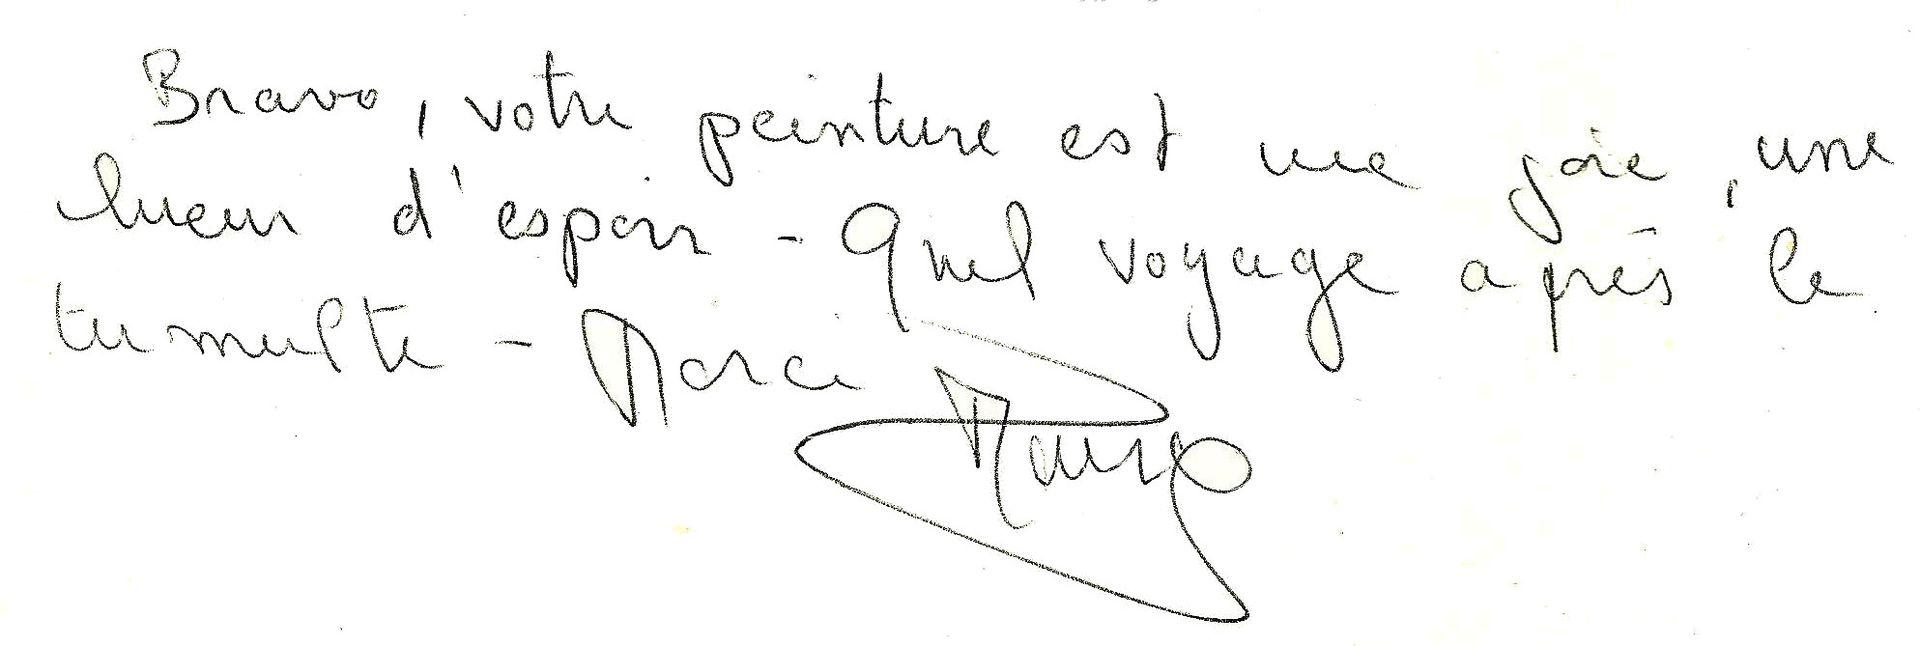 Bravo, votre peinture est une joie, une
lueur d'espoir - Quel voyage après le
tumulte - Merci